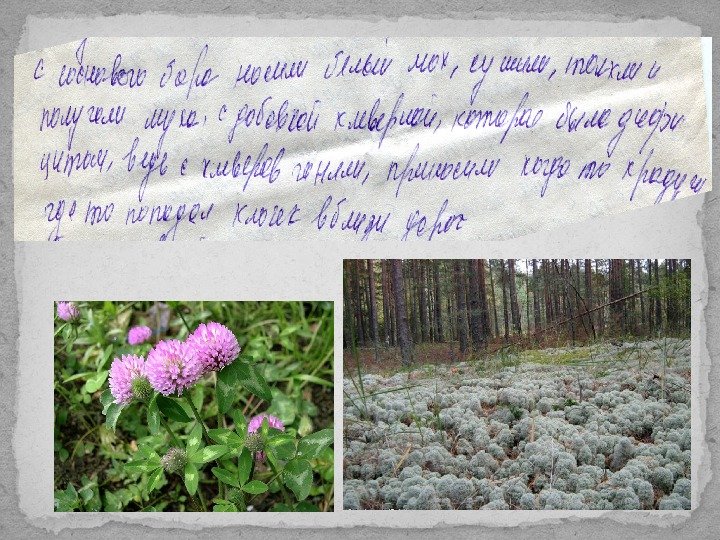 с соснового бора носили белый мох, сушили, толкли и
получали мука, с добавкой клеверной, которая была дефи
цитом, ведь с клеверов гоняли, приносили когда то крадучи
где то попадал клочек вблизи дорог